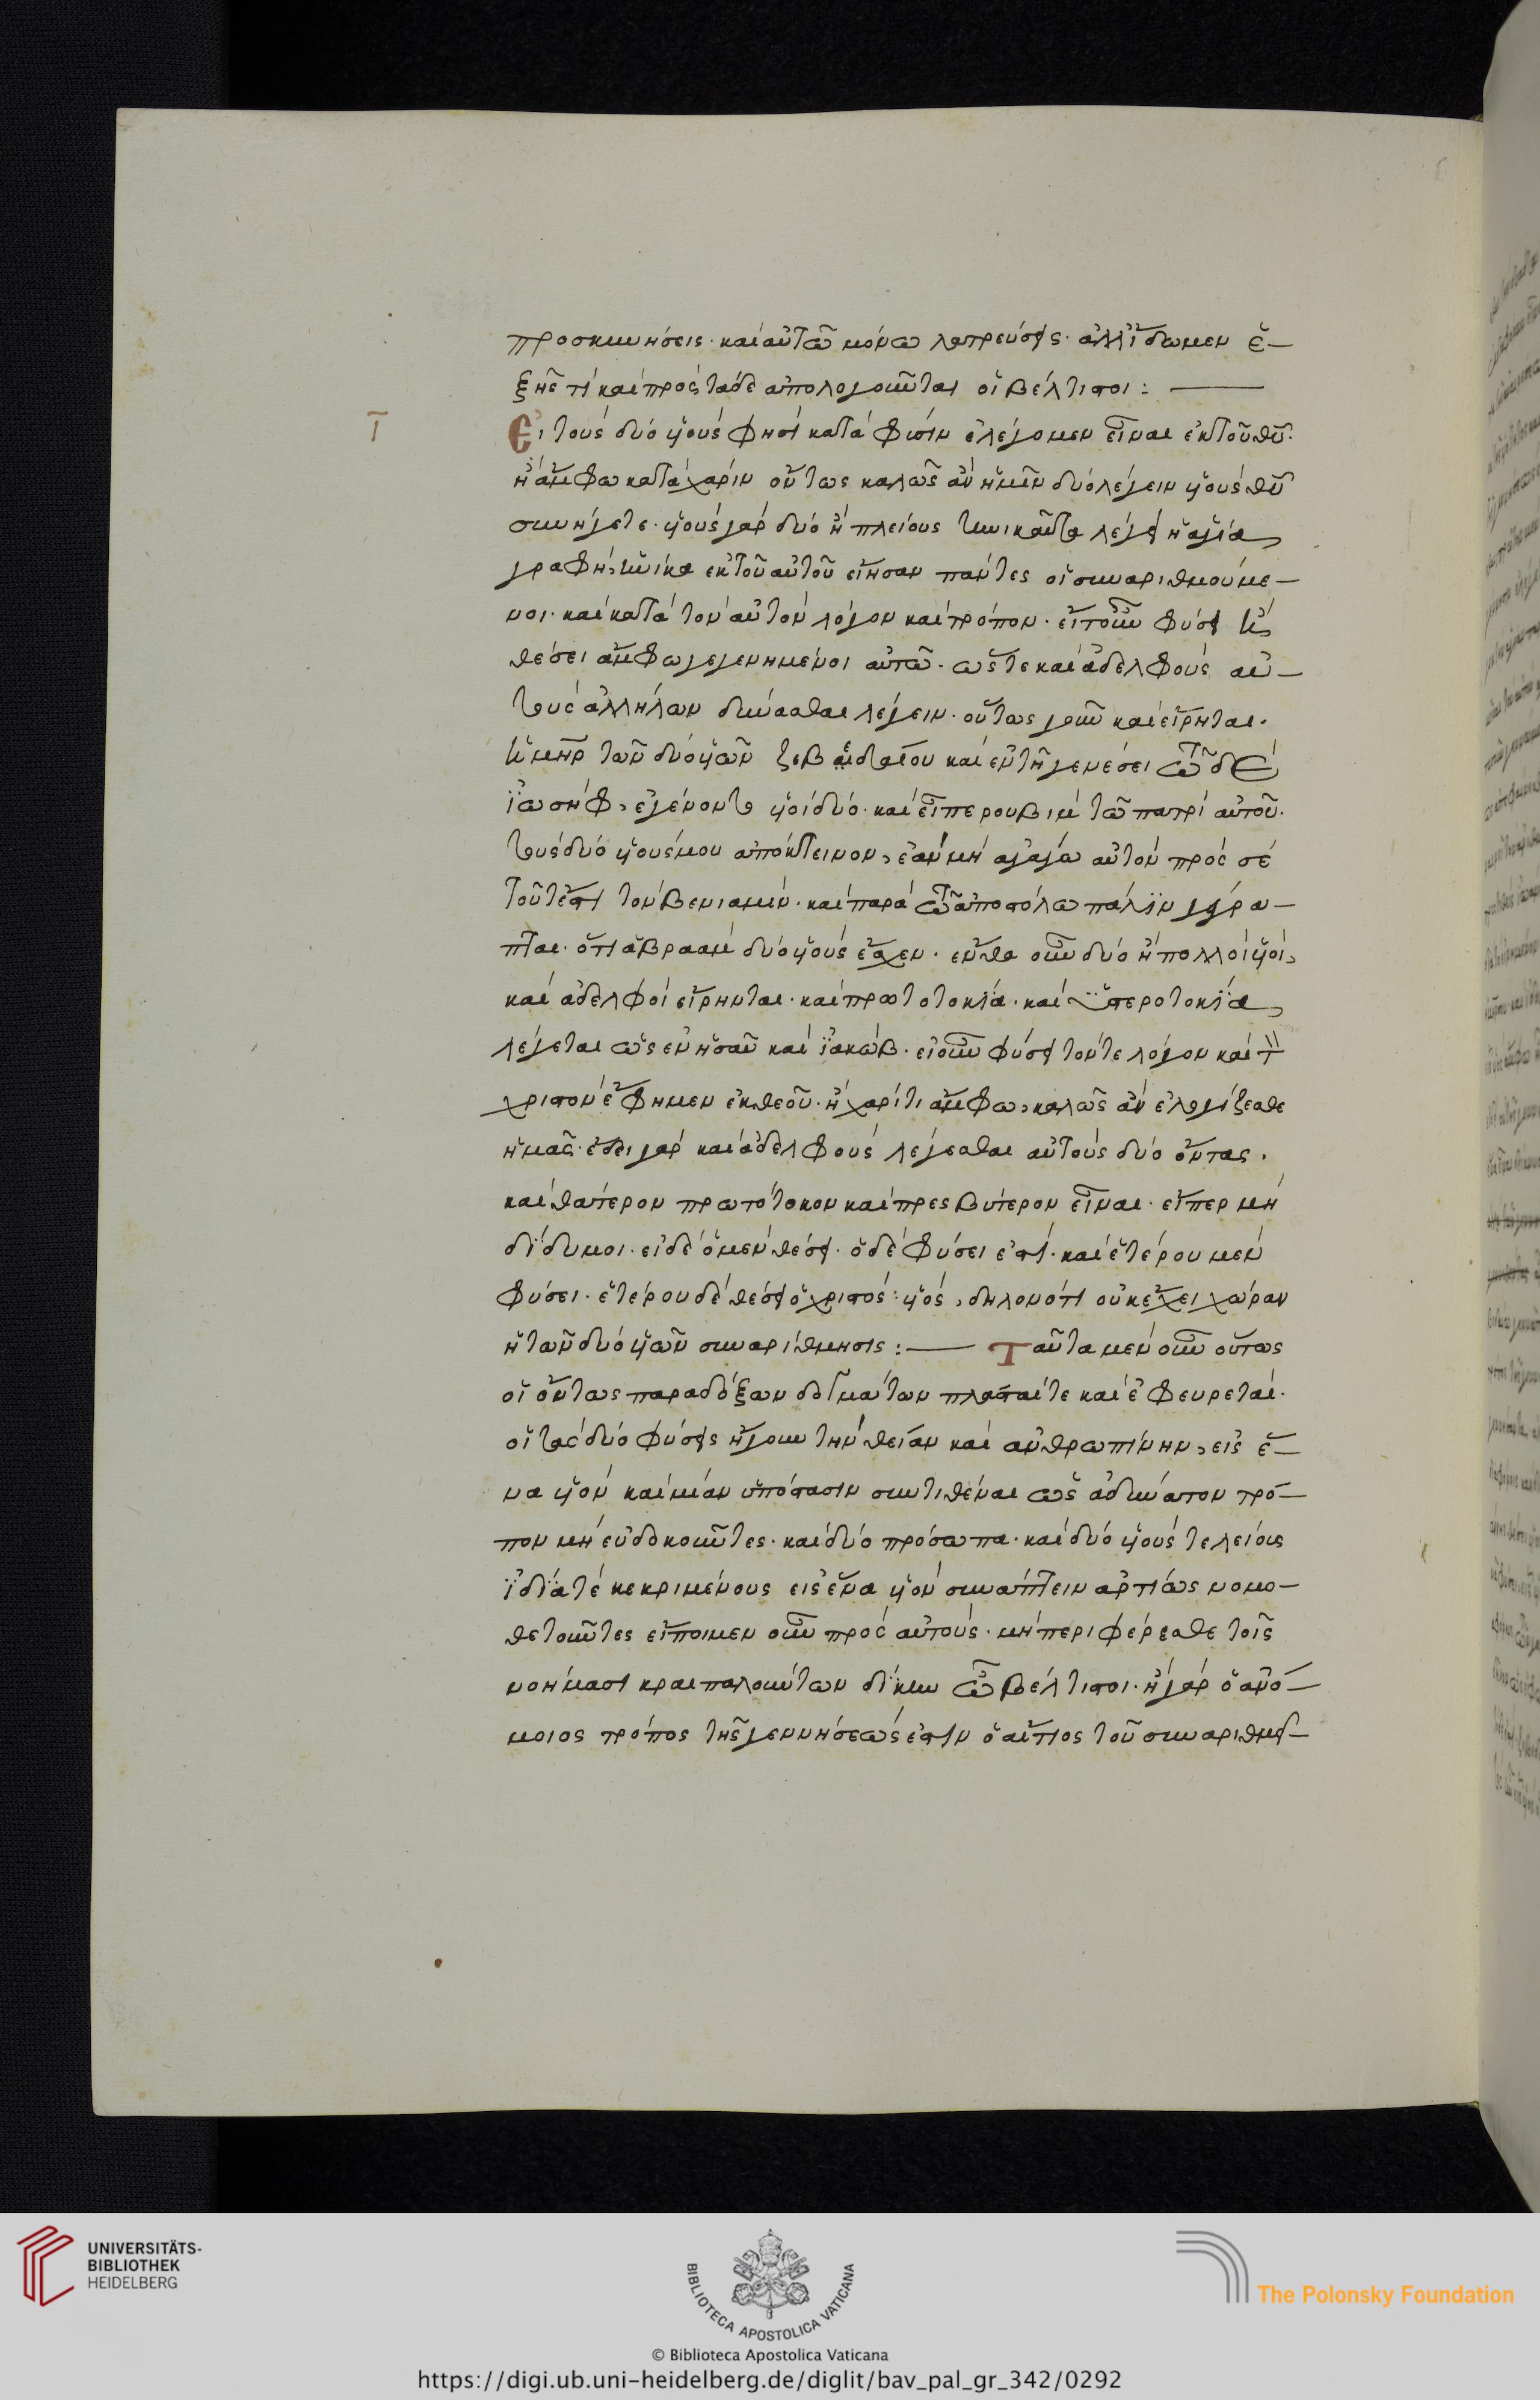 προσκυνήσεις· καὶ αὐτῶ μόνω λατρεύσεις· ἀλλ' ἴδωμεν ἑ–
ξῆς τί καὶ πρὸς τάδε ἀπολογοῦνται οἱ βέλτιστοι: —
Εἰ τοὺς δύο υἱοὺς φησὶ κατὰ φύσιν ἐλέγομεν εἶναι ἐκ τοῦ θυ·
ἢ ἄμφω κατὰ χάριν οὕτως καλῶς ἂν ἡμῖν δύο λέγειν υἱοὺς θυ
συνήγετε· υἱοὺς γὰρ δύο ἢ πλείους τηνικαῦτα λέγει ἡ ἁγία
γραφὴ, ἡνίκα ἐκ τοῦ αὐτοῦ εἴησαν πάντες οἱ συναριθμούμε–
νοι· καὶ κατὰ τὸν αὐτὸν λόγον καὶ τρόπον· εἴτουν φύσει ἢ
θέσει ἄμφω γεγενημένοι αὐτῶ· ὥστε καὶ ἀδελφοὺς αὐ–
τοὺς ἀλλήλων δύνασθαι λέγειν· οὕτως γοῦν καὶ εἴρηται·
ἡ μηρ τῶν δύο υἱῶν ζεβεδαίου καὶ ἐν τῆ γενέσει τῶ δὲ
ἰωσὴφ, ἐγένοντο υἱοὶ δύο· καὶ εἶπε ρουβὶμ τῶ πατρὶ αὐτοῦ·
τοὺς δύο υἱούς μου ἀπόκτεινον, ἐὰν μὴ ἀγάγω αὐτὸν πρὸς σέ
τουτέστι τὸν βενιαμίν· καὶ παρὰ τῶ ἀποστόλω πάλιν γέγρα–
πται· ὅτι ἀβραὰμ δύο υἱοὺς ἔσχεν· ἔνθα οὖν δύο ἢ πολλοὶ υἱοὶ,
καὶ ἀδελφοὶ εἴρηνται· καὶ πρωτοτοκία· καὶ ὑστεροτοκία
λέγεται ὡς ἐν ἡσαῦ καὶ ἰακώβ· εἰ οὖν φύσει τόν τε λόγον καὶ τ
χριστὸν ἔφημεν ἐκ θεοῦ· ἢ χάριτι ἄμφω, καλῶς ἂν ἐλογίζεσθε
ἡμᾶς· ἔδει γὰρ καὶ ἀδελφοὺς λέγεσθαι αὐτοὺς δύο ὄντας·
καὶ θάτερον πρωτότοκον καὶ πρεσβύτερον εἶναι· εἴπερ μὴ
δίδυμοι· εἰ δὲ ὁ μὲν θέσει· ὁ δὲ φύσει ἐστί· καὶ ἑτέρου μὲν
φύσει· ἑτέρου δὲ θέσει ὁ χριστὸς υἱός, δηλονότι οὐκ ἔχει χώραν
ἡ τῶν δύο υἱῶν συναρίθμησις: — Ταῦτα μὲν οὖν οὕτως
οἱ ὄντως παραδόξων δογμάτων πλάσταί τε καὶ ἐφευρεταί·
οἱ τὰς δύο φύσεις ἤγουν τὴν θείαν καὶ ἀνθρωπίνην, εἰς ἕ–
να υἱὸν καὶ μίαν ὑπόστασιν συντιθέναι ὡς ἀδύνατον τρό–
πον μὴ εὐδοκοῦντες· καὶ δύο πρόσωπα· καὶ δύο υἱοὺς τελείους
ἰδία τὲ κεκριμένους εἰς ἕνα υἱὸν συνάπτειν ἀρτίως νομο–
θετοῦντες εἴποιμεν οὖν πρὸς αὐτούς· μὴ περιφέρεσθε τοῖς
νοήμασι κραιπαλούντων δίκην ὦ βέλτιστοι· ἢ γὰρ ὁ ἀνό–
μοιος τρόπος τῆς γεννήσεώς ἐστιν ὁ αἴτιος τοῦ συναριθμεῖ–
UNIVERSITÄTS-
BIBLIOTHEK
HEIDELBERG
BIBLIOTECA APOSTOLICA VATICANA
The Polonsky Foundation
© Biblioteca Apostolica Vaticana
https://digi.ub.uni-heidelberg.de/diglit/bav_pal_gr_342/0292